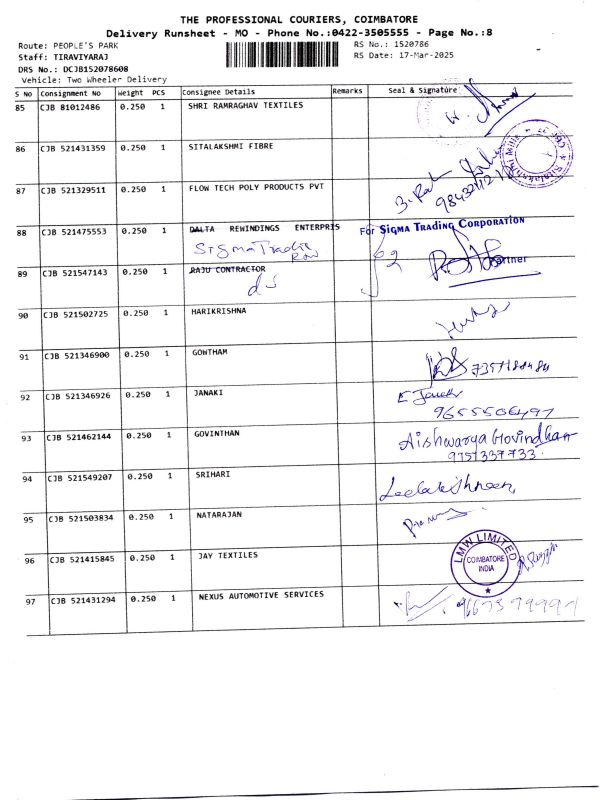 THE PROFESSIONAL COURIERS, COIMBATORE
Delivery Runsheet - MO - Phone No.:0422-3505555 - Page No.:8
Route: PEOPLE'S PARK RS No.: 1520786
Staff: TIRAVIYARAJ RS Date: 17-Mar-2025
DRS No.: DCJB152078608
Vehicle: Two Wheeler Delivery
S No Consignment No Weight PCS Consignee Details Remarks Seal & Signature
85 CJB 81012486 0.250 1 SHRI RAMRAGHAV TEXTILES
86 CJB 521431359 0.250 1 SITALAKSHMI FIBRE
87 CJB 521329511 0.250 1 FLOW TECH POLY PRODUCTS PVT
88 CJB 521475553 0.250 1 DALTA REWINDINGS ENTERPRIS For SIGMA TRADING CORPORATION
Sigma Trading
89 CJB 521547143 0.250 1 RAJU CONTRACTOR Partner
90 CJB 521502725 0.250 1 HARIKRISHNA
91 CJB 521346900 0.250 1 GOWTHAM
92 CJB 521346926 0.250 1 JANAKI
9655506497
93 CJB 521462144 0.250 1 GOVINTHAN Aishwarya Govindhan
9751337733
94 CJB 521549207 0.250 1 SRIHARI
95 CJB 521503834 0.250 1 NATARAJAN
96 CJB 521415845 0.250 1 JAY TEXTILES LMW LIMITED
COIMBATORE
INDIA
97 CJB 521431294 0.250 1 NEXUS AUTOMOTIVE SERVICES